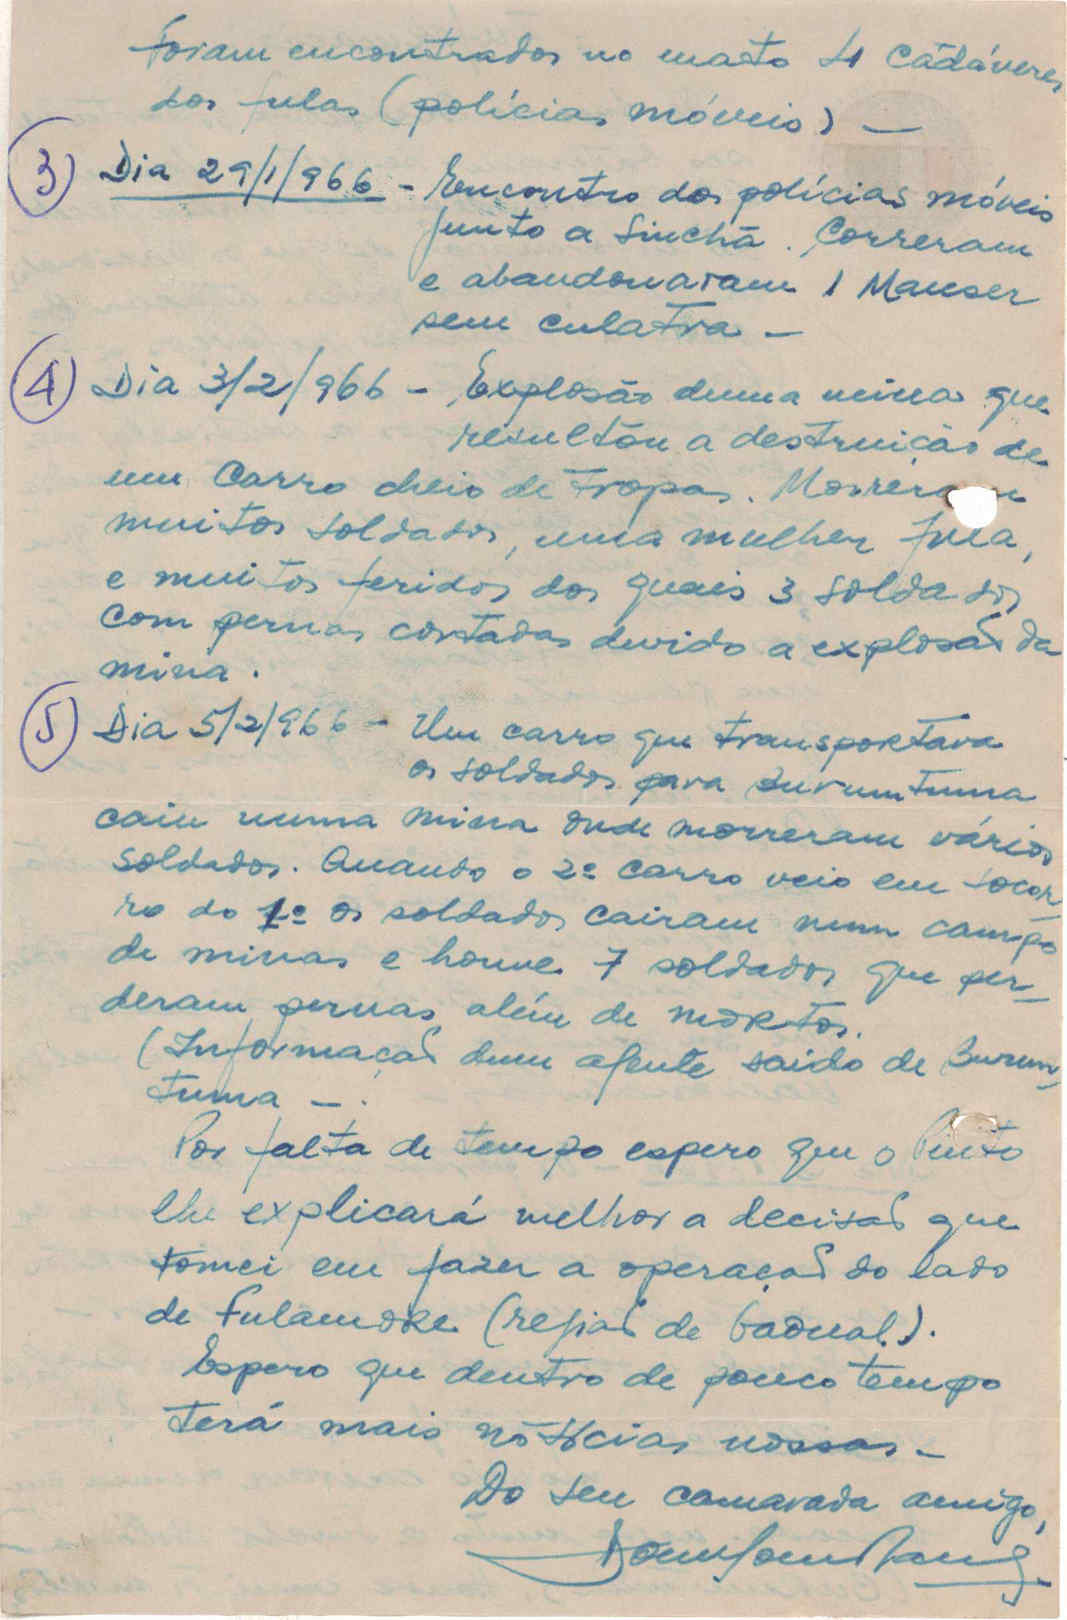 foram encontrados no mato 4 cádáveres
dos fulas (polícias móveis) —
3) Dia 29/1/966 - Encontro dos polícias móveis
junto a Sinchã. Correram
e abandonaram 1 Mauser
sem culatra —
4) Dia 3/2/966 - Explosão duma mina que
resultou a destruição de
um Carro cheio de tropas. Morreram
muitos soldados, uma mulher fula,
e muitos feridos dos quais 3 soldados
com pernas cortadas devido a explosão da
mina.
5) Dia 5/2/966 - Um carro que transportava
os soldados para Buruntuma
caiu numa mina onde morreram vários
soldados. Quando o 2º carro veio em socor-
ro do 1º os soldados cairam num campo
de minas e houve 7 soldados que per-
deram pernas além de mortos.
(Informação dum agente saido de Burun-
tuma —.
Por falta de tempo espero que o Pinto
lhe explicará melhor a decisão que
tomei em fazer a operação do lado
de Fulamore (região de Gadual).
Espero que dentro de pouco tempo
terá mais nóticias nossas —
Do seu camarada amigo,